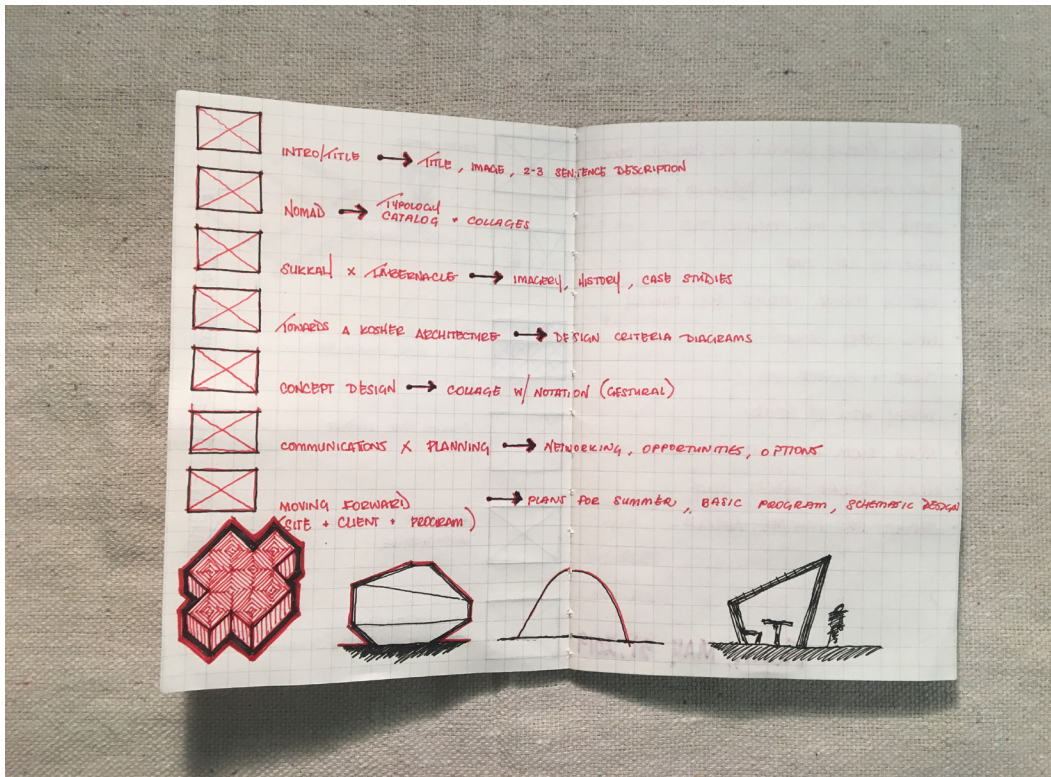 INTRO/TITLE → TITLE, IMAGE, 2-3 SENTENCE DESCRIPTION
NOMAD → TYPOLOGY
CATALOG + COLLAGES
SUKKAH X TABERNACLE → IMAGERY, HISTORY, CASE STUDIES
TOWARDS A KOSHER ARCHITECTURE → DESIGN CRITERIA DIAGRAMS
CONCEPT DESIGN → COLLAGE W/ NOTATION (GESTURAL)
COMMUNICATIONS X PLANNING → NETWORKING, OPPORTUNITIES, OPTIONS
MOVING FORWARD → PLANS FOR SUMMER, BASIC PROGRAM, SCHEMATIC DESIGN
(SITE + CLIENT + PROGRAM)